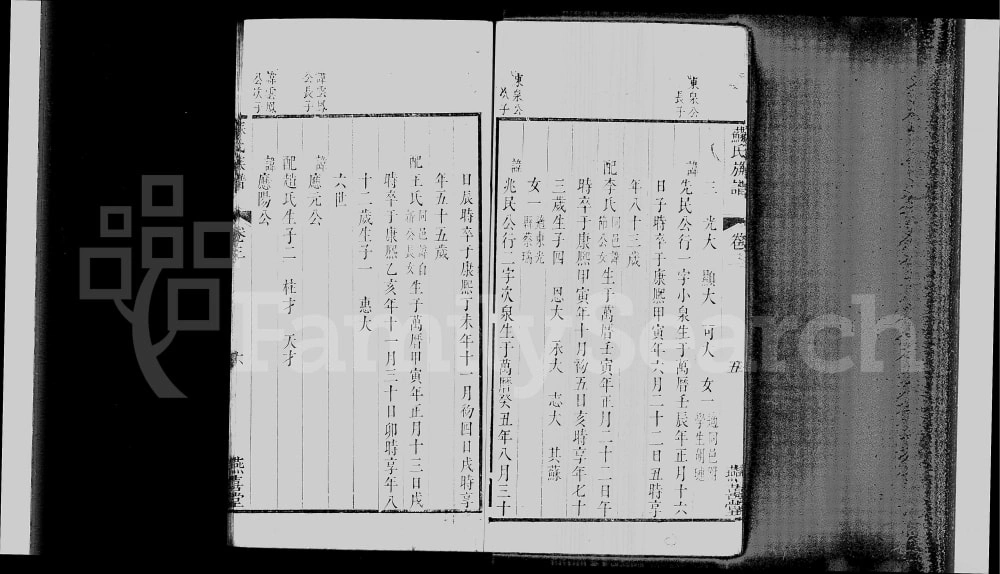 蘇氏族譜 卷 五 燕喜堂
東泉公
長子
三 光大 顯大 可大 女一 適同邑庠
學生
諱先民公行一字小泉生于萬曆壬辰年正月十六
日子時卒于康熙甲寅年六月二十二日丑時享
年八十三歲
配李氏 同邑諱
節公女 生于萬曆壬寅年正月二十二日午
時卒于康熙甲寅年十月初五日亥時享年七十
三歲生子四 恩大 承大 志大 其蘇
女一 適東光
蔡瑞
東泉公
次子
諱兆民公行二字次泉生于萬曆癸丑年八月三十
日辰時卒于康熙丁未年十一月初四日戌時享
年五十五歲
配王氏 同邑諱自
新公長女 生于萬曆甲寅年正月十三日戌
時卒于康熙乙亥年十一月三十日卯時享年八
十二歲生子一 惠大
六世
諱雲鳳
公長子
諱應元公
諱雲鳳
公次子
諱應陽公
配趙氏生子二 柱才 天才
氏族譜 卷 六 燕喜堂
FamilySearch